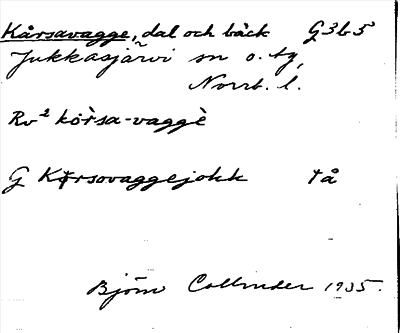 Kårsavagge, dal och bäck G3b5
Jukkasjärvi sn o. tg,
Norrb. l.
Rv² kòrsa-vaggè
G Kårsovaggejokk †å
Björn Collinder 1935.